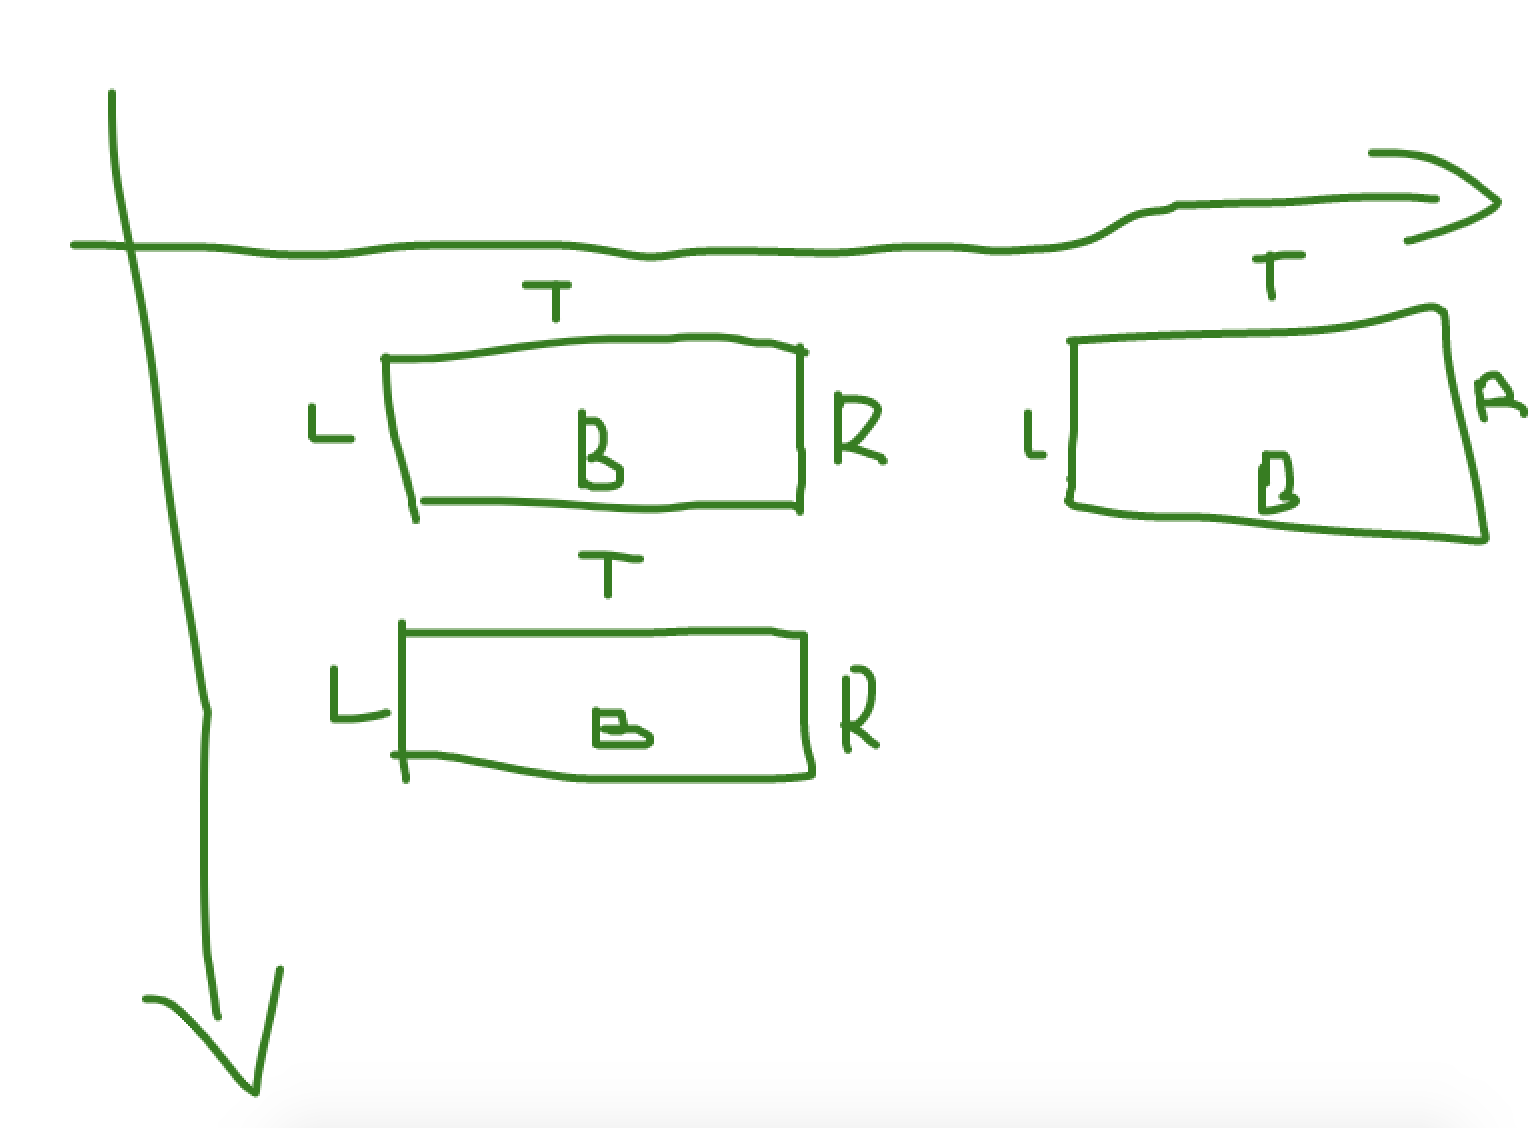 T T
L B R L B R
T
L B R